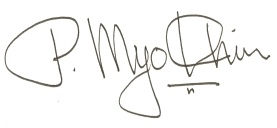 P. Myo Khin